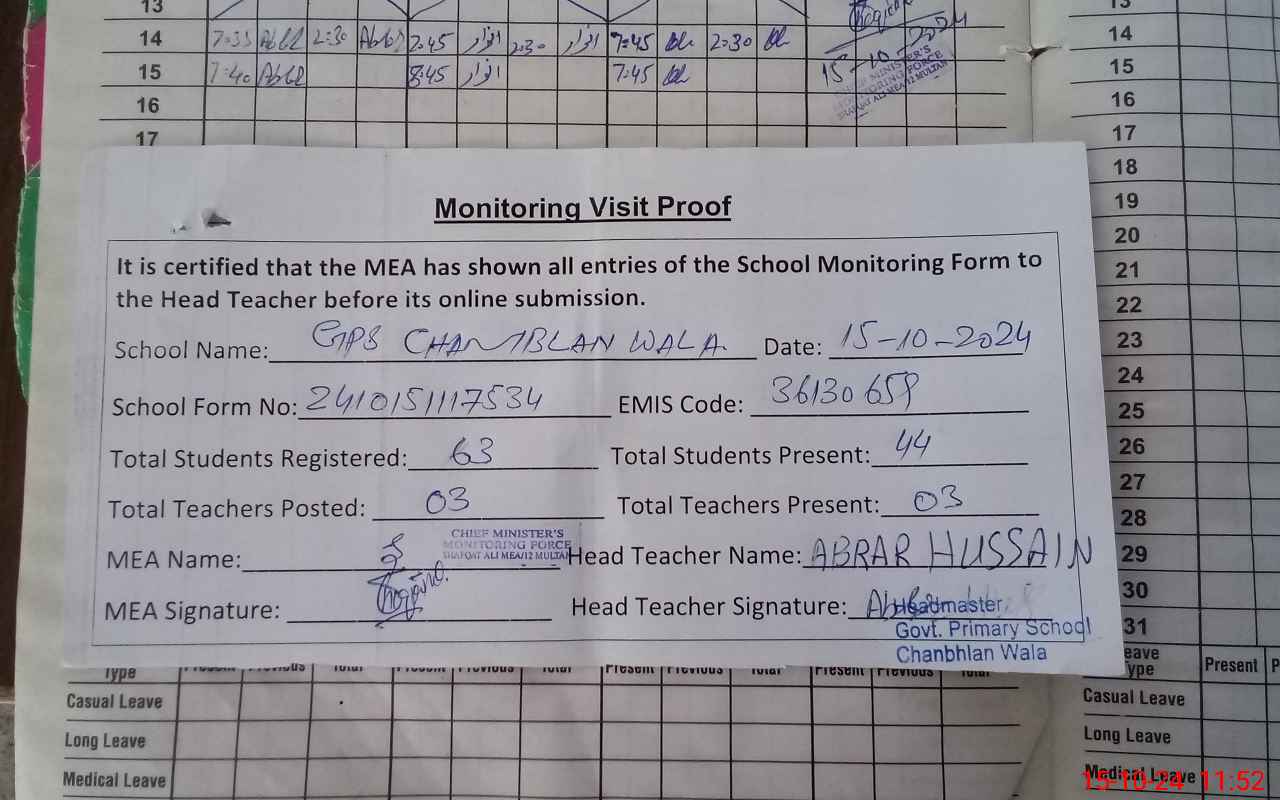 13 13
14 7:35 2:30 7:45 ابرار 2:30 ابرار 7:45 2:30 2024 14
15 7:40 8:45 ابرار 7:45 15-10-2024 15
CHIEF MINISTER'S
MONITORING FORCE
SHAFQAT ALI MEA/12 MULTAN
16 16
17 17
18
Monitoring Visit Proof
19
20
It is certified that the MEA has shown all entries of the School Monitoring Form to
21
the Head Teacher before its online submission.
22
School Name: GPS CHAMBLAN WALA. Date: 15-10-2024
23
24
School Form No: 2410151117534 EMIS Code: 36130659
25
Total Students Registered: 63 Total Students Present: 44
26
27
Total Teachers Posted: 03 Total Teachers Present: 03
28
CHIEF MINISTER'S
MONITORING FORCE
SHAFQAT ALI MEA/12 MULTAN
MEA Name: Head Teacher Name: ABRAR HUSSAIN
29
30
MEA Signature: Head Teacher Signature:
Headmaster
Govt. Primary School
31
Chanbhlan Wala
Type Present Previous Total Present Previous Total Present Previous Total Present Previous Total
Leave Type Present
Casual Leave Casual Leave
Long Leave Long Leave
Medical Leave Medical Leave
15-10-24 11:52